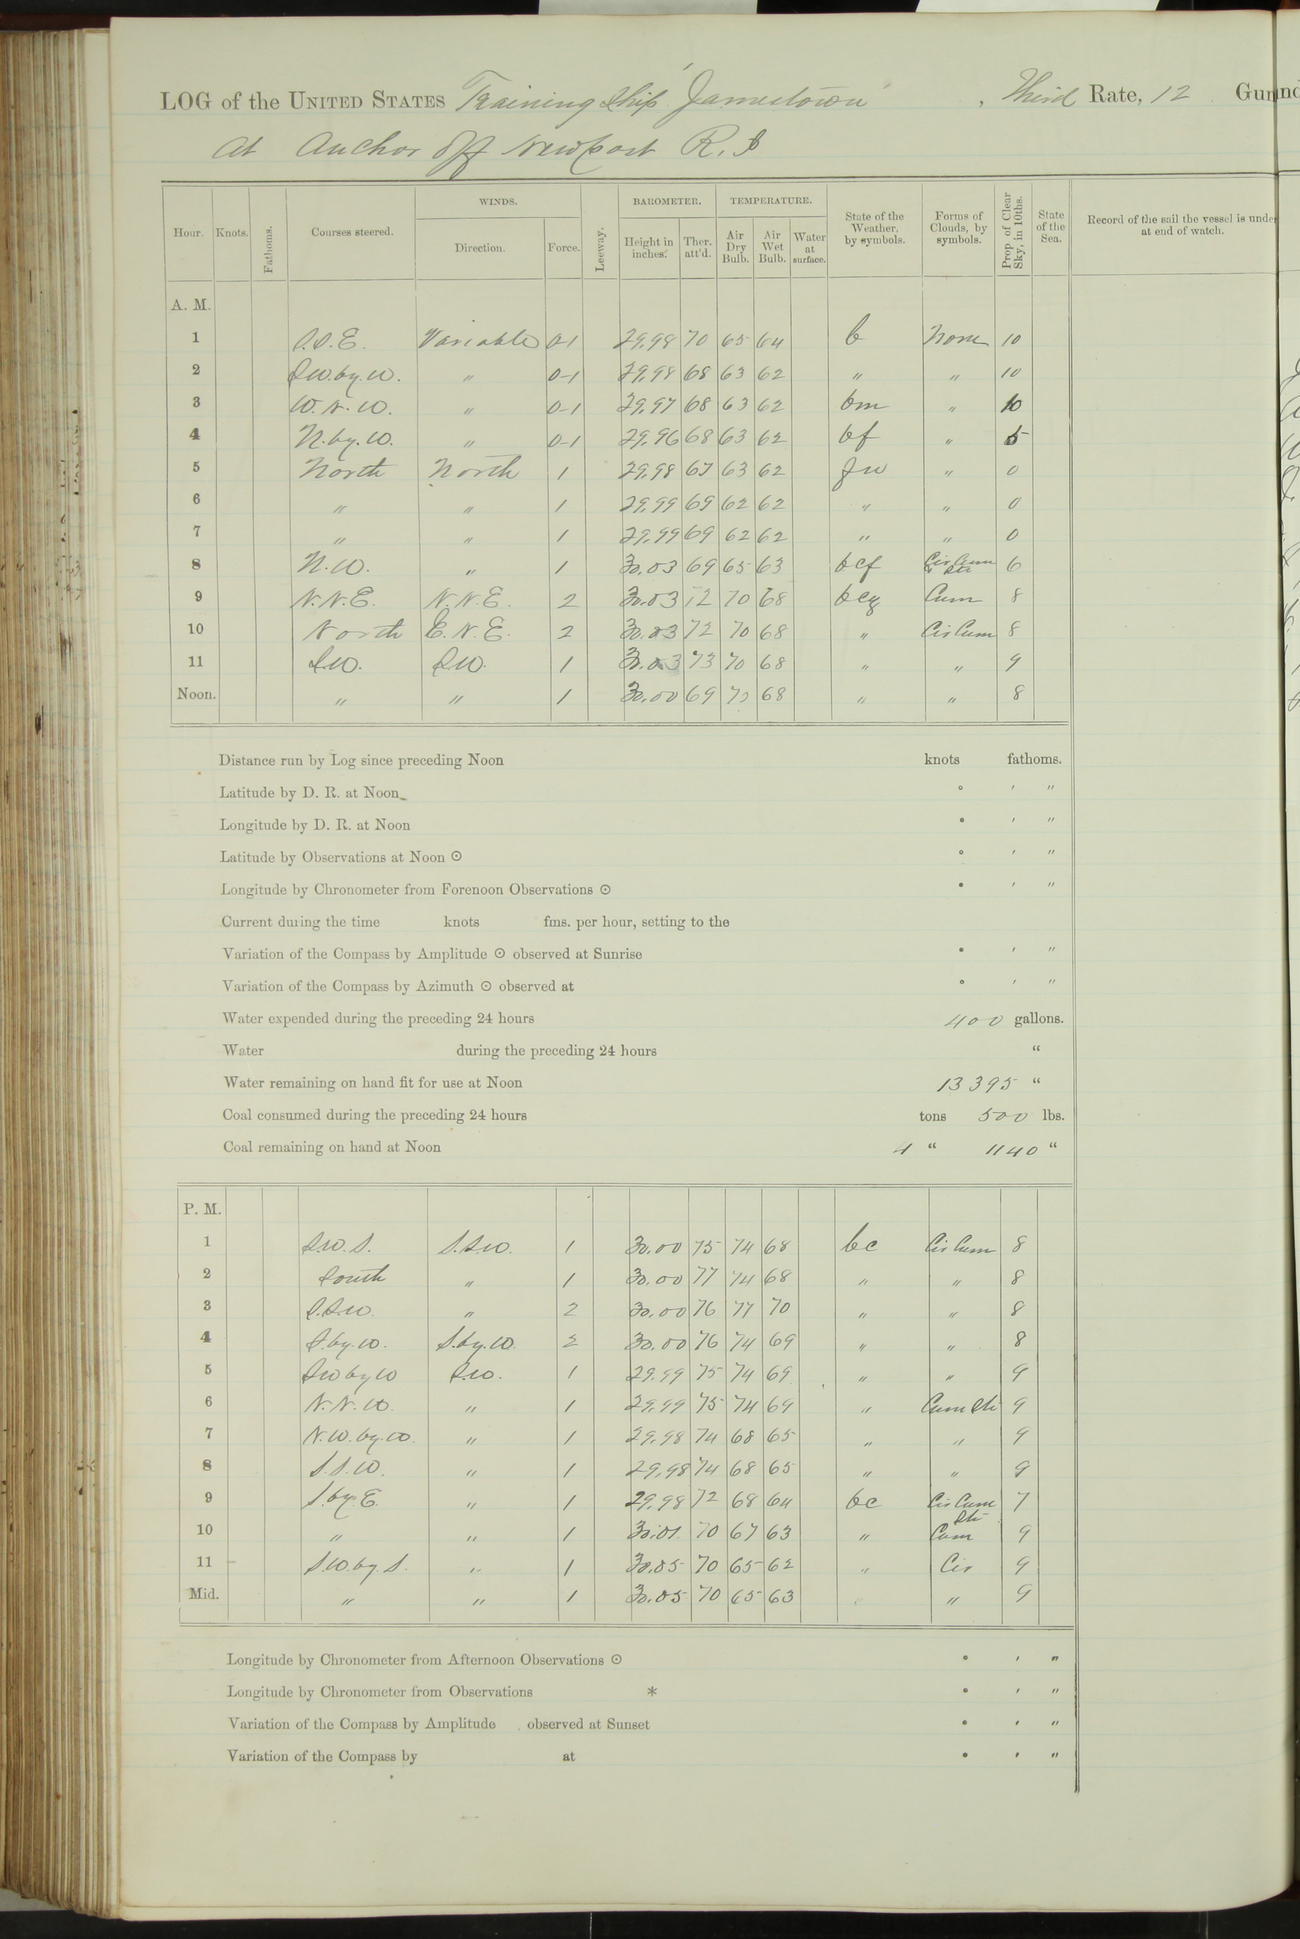 LOG of the UNITED STATES Training Ship "Jamestown", Third Rate, 12 Gun
At Anchor off Newport R. I
Hour. Knots. Fathoms. Courses steered. WINDS. Direction. Force. Leeway. BAROMETER. Height in inches. Ther. att'd. TEMPERATURE. Air Dry Bulb. Air Wet Bulb. Water at surface. State of the Weather, by symbols. Forms of Clouds, by symbols. Prop of Clear Sky, in 10ths. State of the Sea. Record of the sail the vessel is under at end of watch.
A. M.
1 S.S.E. Variable 0-1 29.98 70 65 64 b None 10
2 SW.by.W. " 0-1 29.98 68 63 62 " " 10
3 W.N.W. " 0-1 29.97 68 63 62 bm " 10
4 N.by.W. " 0-1 29.96 68 63 62 bf " 5
5 North North 1 29.98 67 63 62 " 0
6 " " 1 29.99 69 62 62 " " 0
7 " " 1 29.99 69 62 62 " " 0
8 N.W. " 1 30.03 69 65 63 bcf Cir Cum & Str 6
9 N.N.E. N.N.E. 2 30.03 72 70 68 bcq Cum 8
10 North E.N.E. 2 30.03 72 70 68 " Cir Cum 8
11 SW. SW. 1 30.03 73 70 68 " " 9
Noon. " " 1 30.00 69 72 68 " " 8
Distance run by Log since preceding Noon knots fathoms.
Latitude by D. R. at Noon ° ′ ″
Longitude by D. R. at Noon ° ′ ″
Latitude by Observations at Noon ⊙ ° ′ ″
Longitude by Chronometer from Forenoon Observations ⊙ ° ′ ″
Current during the time knots fms. per hour, setting to the
Variation of the Compass by Amplitude ⊙ observed at Sunrise ° ′ ″
Variation of the Compass by Azimuth ⊙ observed at ° ′ ″
Water expended during the preceding 24 hours 400 gallons.
Water during the preceding 24 hours "
Water remaining on hand fit for use at Noon 13395 "
Coal consumed during the preceding 24 hours tons 500 lbs.
Coal remaining on hand at Noon 4 " 1140 "
P. M.
1 SW.S. S.SW. 1 30.00 75 74 68 bc Cir Cum 8
2 South " 1 30.00 77 74 68 " " 8
3 S.SW. " 2 30.00 76 77 70 " " 8
4 S.by.W. S.by.W. 2 30.00 76 74 69 " " 8
5 SW by W SW. 1 29.99 75 74 69 " " 9
6 N.N.W. " 1 29.99 75 74 69 " Cum Str 9
7 N.W.by.W. " 1 29.98 74 68 65 " " 9
8 S.S.W. " 1 29.98 74 68 65 " " 9
9 S.by.E. " 1 29.98 72 68 64 bc Cir Cum Str 7
10 " " 1 30.01 70 67 63 " Cum 9
11 SW.by.S. " 1 30.05 70 65 62 " Cir 9
Mid. " " 1 30.05 70 65 63 " 9
Longitude by Chronometer from Afternoon Observations ⊙ ° ′ ″
Longitude by Chronometer from Observations * ° ′ ″
Variation of the Compass by Amplitude observed at Sunset ° ′ ″
Variation of the Compass by at ° ′ ″